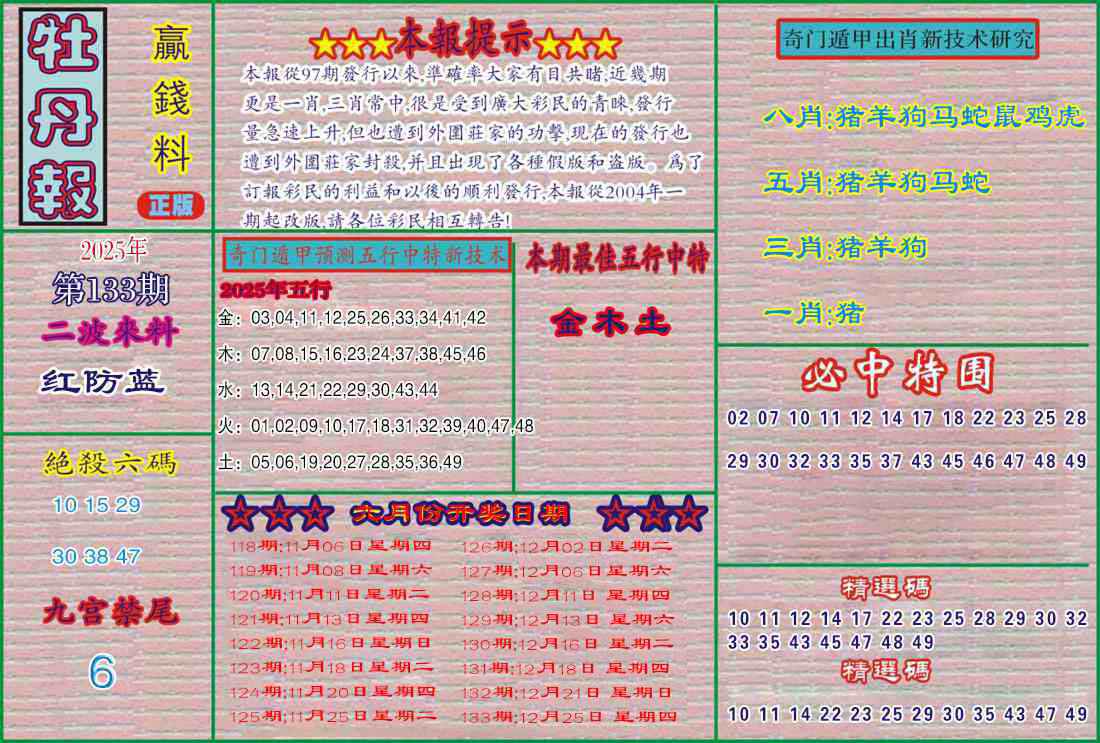 牡丹報
贏錢料
正版
2025年
第133期
二波來料
红防蓝
絕殺六碼
10 15 29
30 38 47
九宫禁尾
6
★★★本報提示★★★
本報從97期發行以來,準確率大家有目共睹,近幾期
更是一肖,三肖常中,很是受到廣大彩民的青睞,發行
量急速上升,但也遭到外圍莊家的功擊,現在的發行也
遭到外圍莊家封殺,并且出現了各種假版和盗版。爲了
訂報彩民的利益和以後的順利發行,本報從2004年一
期起改版,請各位彩民相互轉告!
奇门遁甲预测五行中特新技术
2025年五行
金：03,04,11,12,25,26,33,34,41,42
木：07,08,15,16,23,24,37,38,45,46
水：13,14,21,22,29,30,43,44
火：01,02,09,10,17,18,31,32,39,40,47,48
土：05,06,19,20,27,28,35,36,49
本期最佳五行中特
金木土
☆☆☆ 六月份开奖日期 ☆☆☆
118期:11月06日星期四
119期:11月08日星期六
120期:11月11日星期二
121期:11月13日星期四
122期:11月16日星期日
123期:11月18日星期二
124期:11月20日星期四
125期:11月25日星期二
126期:12月02日星期二
127期:12月06日星期六
128期:12月11日 星期四
129期:12月13日 星期六
130期:12月16日 星期二
131期:12月18日 星期四
132期:12月21日 星期日
133期:12月25日 星期四
奇门遁甲出肖新技术研究
八肖:猪羊狗马蛇鼠鸡虎
五肖:猪羊狗马蛇
三肖:猪羊狗
一肖:猪
必中特围
02 07 10 11 12 14 17 18 22 23 25 28
29 30 32 33 35 37 43 45 46 47 48 49
精選碼
10 11 12 14 17 22 23 25 28 29 30 32
33 35 43 45 47 48 49
精選碼
10 11 14 22 23 25 29 30 35 43 47 49